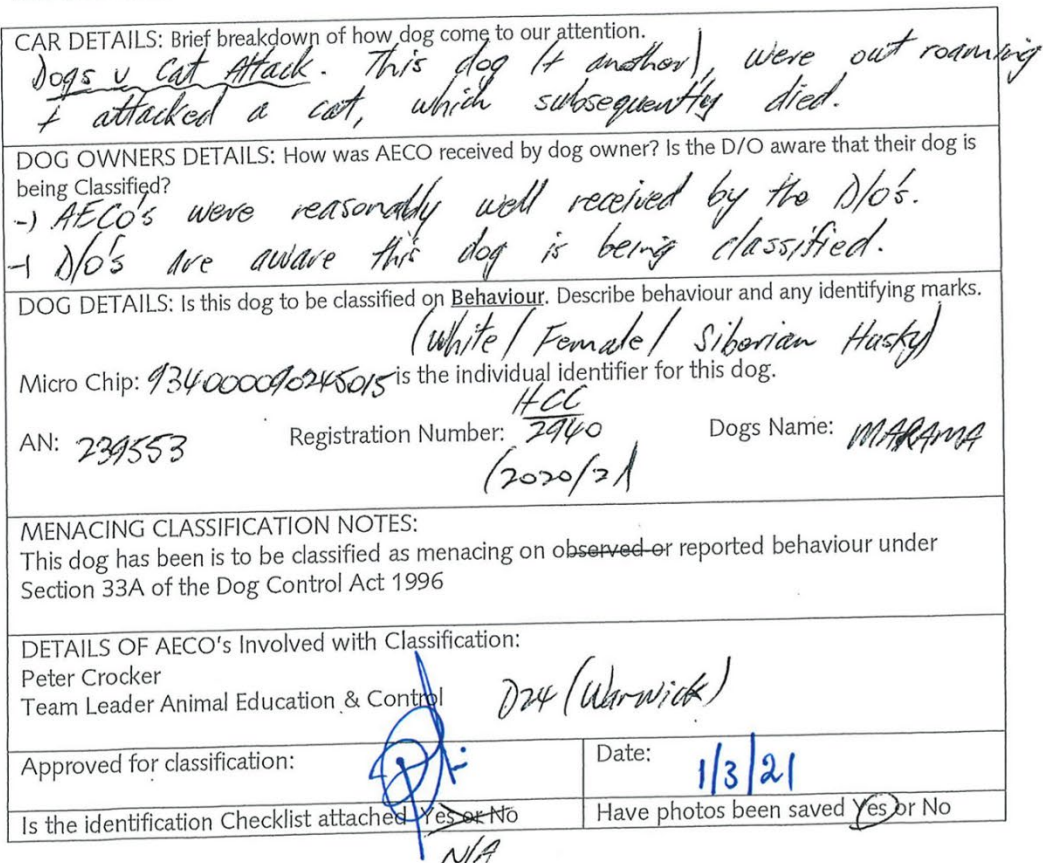 CAR DETAILS: Brief breakdown of how dog come to our attention.
Dogs v Cat Attack. This dog (+ another), were out roaming
+ attacked a cat, which subsequently died.
DOG OWNERS DETAILS: How was AECO received by dog owner? Is the D/O aware that their dog is
being Classified?
-) AECO's were reasonably well received by the D/O's.
-) D/O's are aware this dog is being classified.
DOG DETAILS: Is this dog to be classified on Behaviour. Describe behaviour and any identifying marks.
(White / Female / Siberian Husky)
Micro Chip: 934000090245015 is the individual identifier for this dog.
HCC
AN: 239553 Registration Number: 2940 Dogs Name: MARAMA
(2020/21)
MENACING CLASSIFICATION NOTES:
This dog has been is to be classified as menacing on observed or reported behaviour under
Section 33A of the Dog Control Act 1996
DETAILS OF AECO's Involved with Classification:
Peter Crocker
Team Leader Animal Education & Control D24 (Warwick)
Approved for classification: Date: 1/3/21
Is the identification Checklist attached Yes or No Have photos been saved Yes or No
N/A